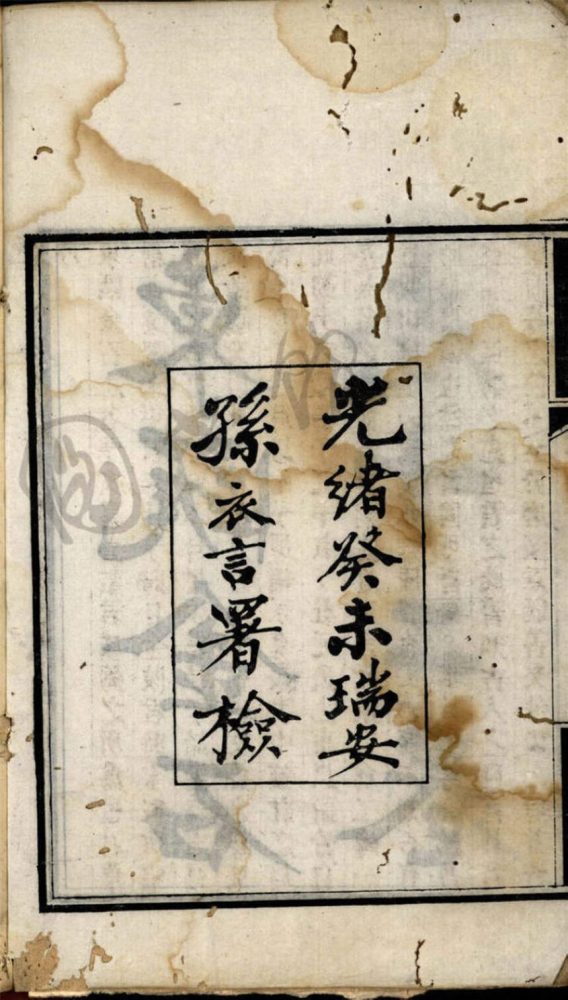 光緒癸未瑞安
孫衣言署檢